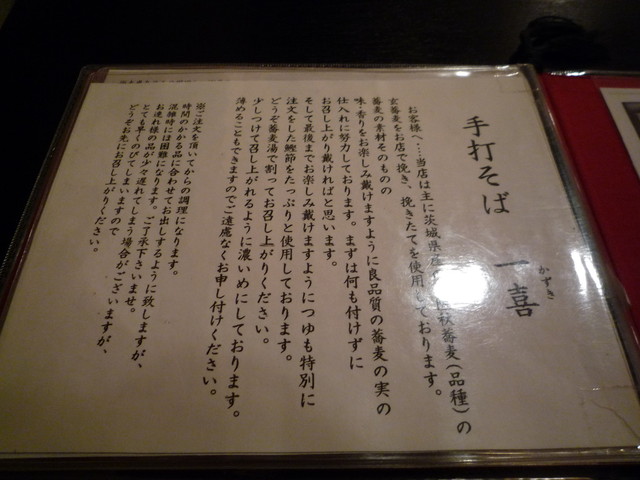 手打そば 一喜
かずき
お客様へ…当店は主に茨城県産 秋蕎麦(品種)の
玄蕎麦をお店で挽き、挽きたてを使用しております。
蕎麦の素材そのものの
味・香りをお楽しみ戴けますように良品質の蕎麦の実の
仕入れに努力しております。まずは何も付けずに
お召し上がり戴ければと思います。
そして最後までお楽しみ戴けますようにつゆも特別に
注文をした鰹節をたっぷりと使用しております。
どうぞ蕎麦湯で割ってお召し上がりください。
少しつけて召し上がれるように濃いめにしております。
薄めることもできますのでご遠慮なくお申し付けください。
※ご注文を頂いてからの調理になります。
時間のかかる品に合わせてお出しするように致しますが、
混雑時には困難になります。ご了承下さいませ。
お連れ様の品が少々遅れてしまう場合がございますが、
とても早くのびてしまいますので
どうぞお先にお召し上がりください。